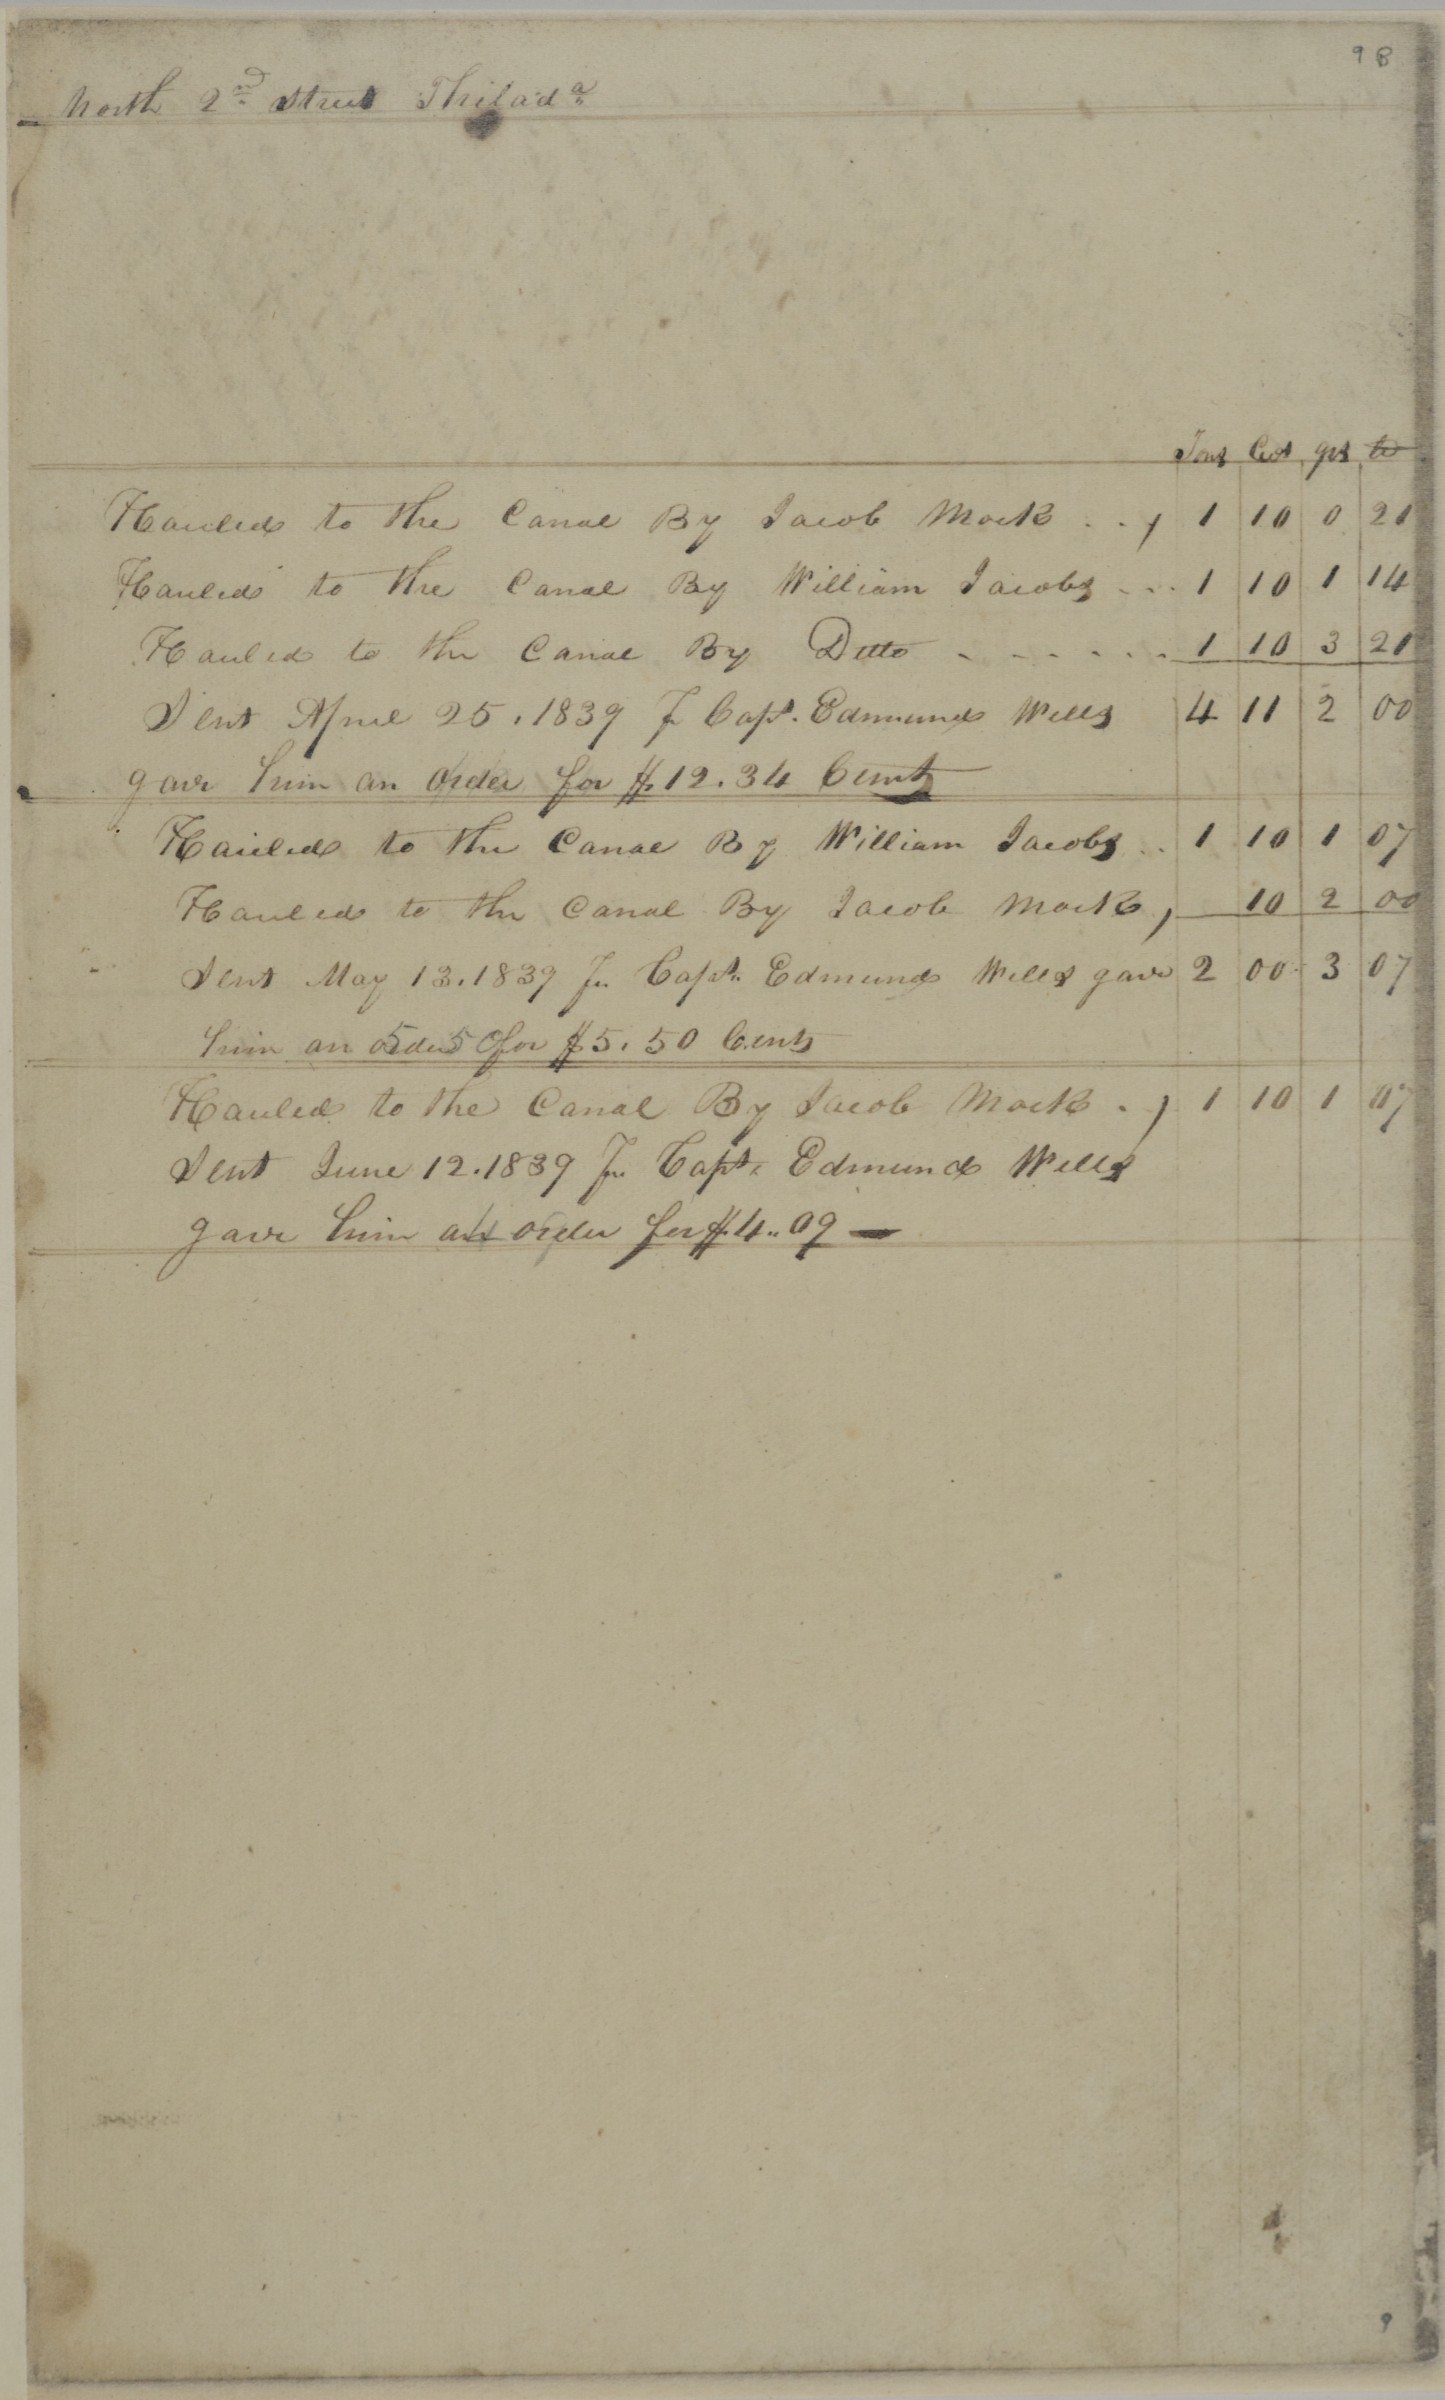 98
North 2nd Street Philada
Tons Cwt qrs lb
Hauled to the Canal By Jacob Mock . . , 1 10 0 21
Hauled to the Canal By William Jacobs . . . 1 10 1 14
Hauled to the Canal By Ditto . . . . . . 1 10 3 21
Sent April 25. 1839 Capt. Edmund Wells 4 11 2 00
gave him an order for $12.34 Cents
Hauled to the Canal By William Jacobs . . 1 10 1 07
Hauled to the Canal By Jacob Mock, 10 2 00
Sent May 13. 1839 Capt. Edmund Wells gave 2 00 3 07
him an order for $5.50 Cents
Hauled to the Canal By Jacob Mock . , 1 10 1 07
Sent June 12. 1839 Capt. Edmund Wells
gave him an order for $4..09 —